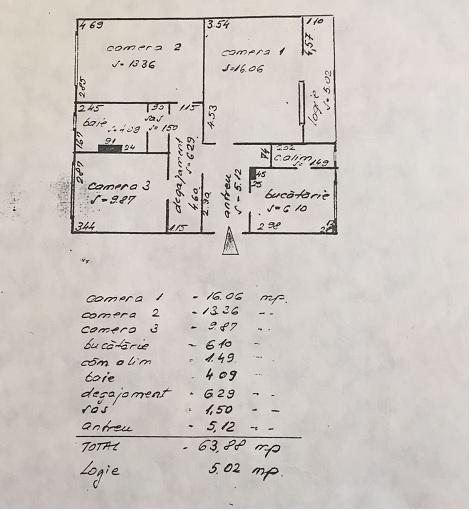 4.69 3.54 1.10
camera 2
S= 13.36
camera 1
S=16.06
4,57
2.85
logie S= 5.02
2.45 90 1.15
baie S=4.09
sas S= 1.50
4.53
1.67
91 24
2.87
degajament S= 6.29
74
2.02
c.alim
S= 1.49
camera 3
S= 9.87
4.60
2.90
antreu S= 5.12
45
bucătărie
S= 6.10
3.44 1.15 2.98
camera 1 - 16.06 mp.
camera 2 - 13.36 - -
camera 3 - 9.87 - -
bucătărie - 6.10 - -
căm alim - 1.49 - -
baie - 4.09 - -
degajament - 6.29 - -
sas - 1,50 - -
antreu - 5,12 - -
TOTAL - 63,88 mp
Logie 5.02 mp.